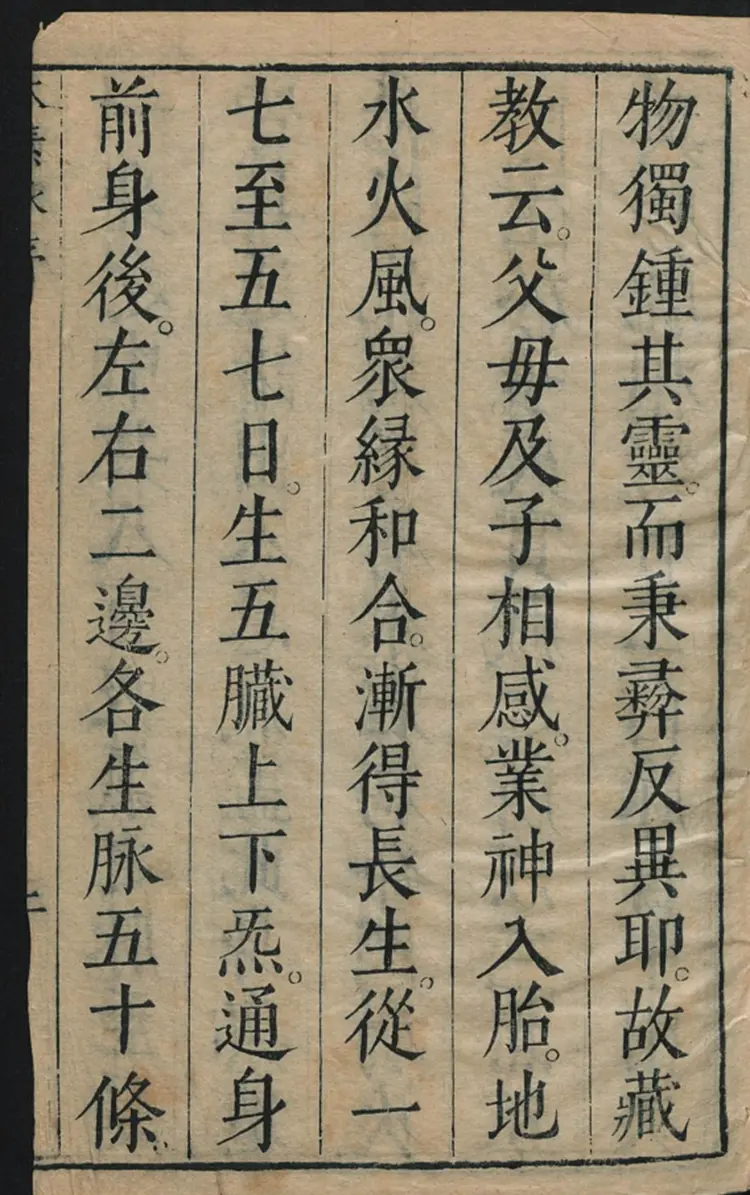 物獨鍾其靈。而秉彛反異耶。故藏
教云。父毋及子相感。業神入胎。地
水火風。衆緣和合。漸得長生。從一
七至五七日。生五臟上下炁。通身
前身後。左右二邊。各生脉五十條